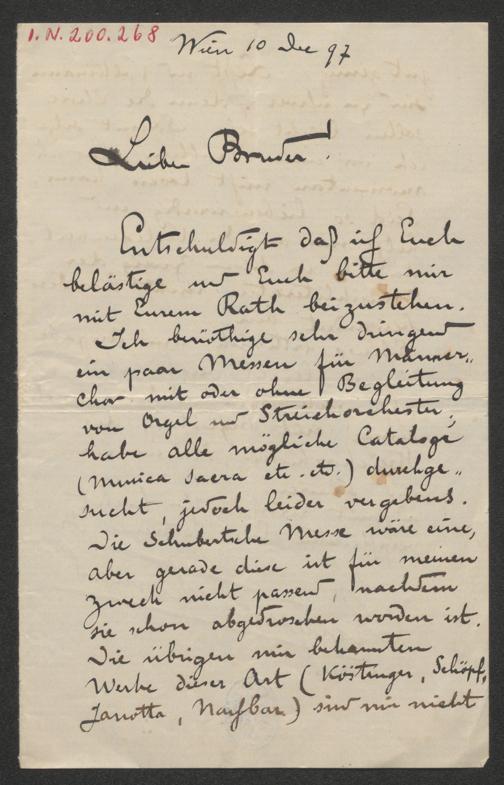 I.N. 200.268
Wien 10 Dec 97
Lieber Bruder!
Entschuldigt daß ich Euch
belästige und Euch bitte mir
mit Eurem Rath beizustehen.
Ich benöthige sehr dringend
ein paar Messen für Männer„
chor mit oder ohne Begleitung
von Orgel und Streichorchester,
habe alle mögliche Cataloge
(Musica sacra etc. etc.) durchge„
sucht, jedoch leider vergebens.
Die Schubertsche Messe wäre eine,
aber gerade diese ist für meinen
Zweck nicht passend, nachdem
sie schon abgedroschen worden ist.
Die übrigen mir bekannten
Werke dieser Art (Köstinger, Schöpf,
Janotta, Nachbar) sind mir nicht